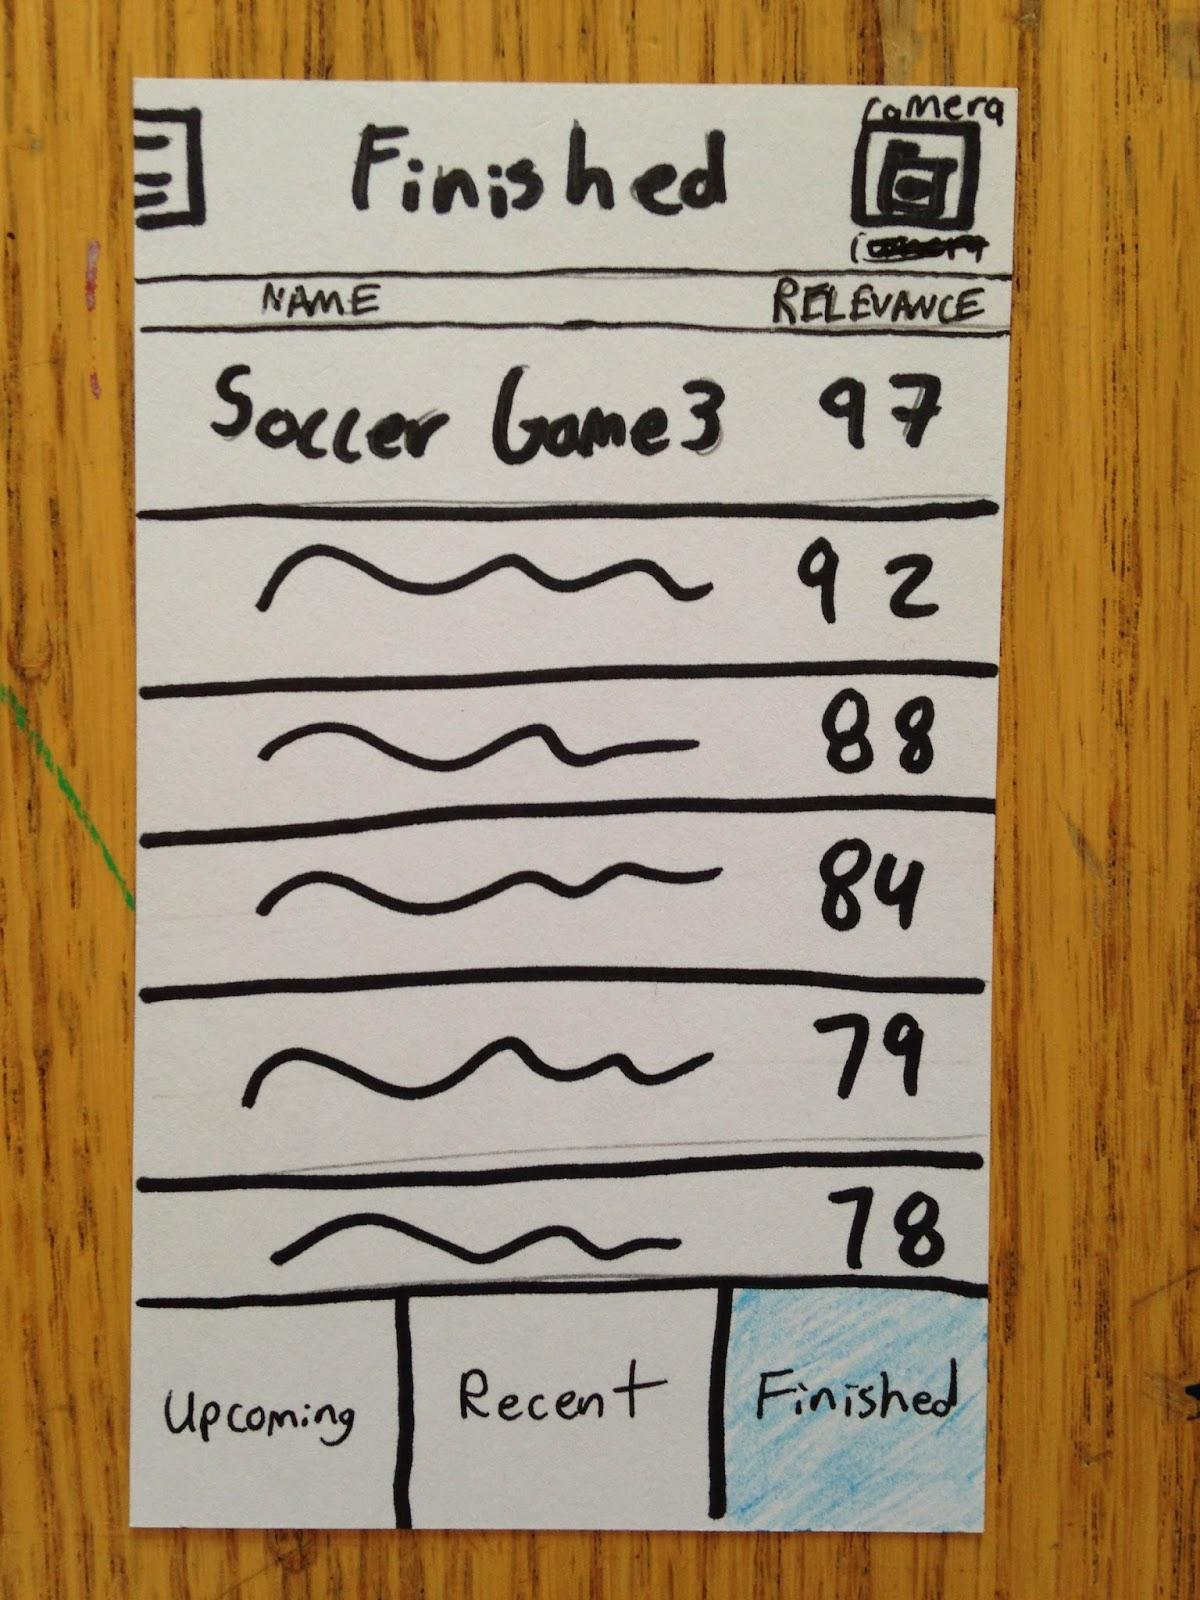 camera
Finished
NAME RELEVANCE
Soccer Game3 97
92
88
84
79
78
Upcoming Recent Finished